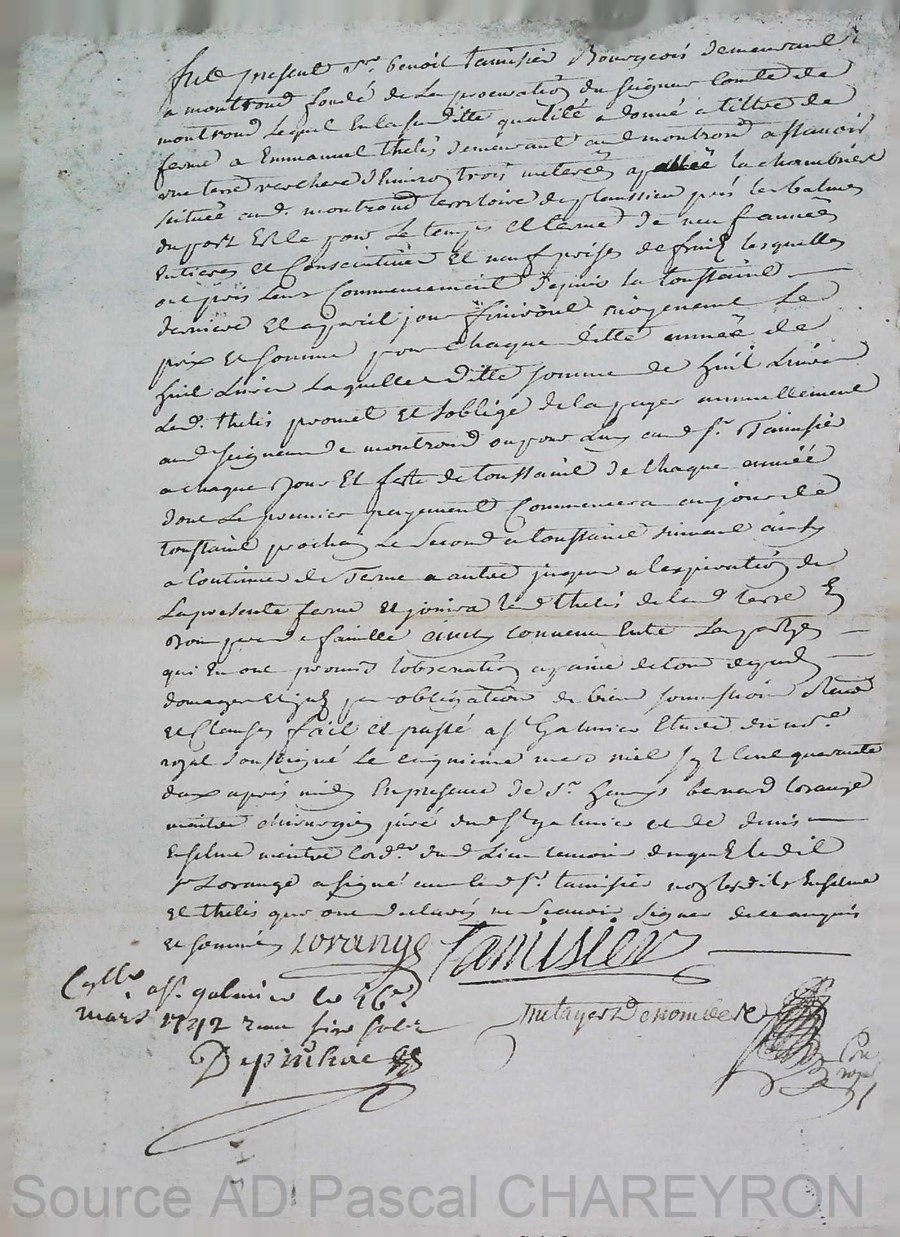 fut present Sr. benoit tamisier Bourgeois demeurant
a montrond fondé de la procuration du seigneur Comte de
montrond lequel en la susditte qualité a donné a tiltre de
ferme a Emmanuel thelis demeurant aud montrond a sçavoir
une terre verchere d'huiron trois meterées apellée la chambriere
située aud. montrond territoire de plaussieu près les balmes
du port Et le pour le temps et terme de neuf années
entieres et Consecutives Et neuf prises de fruits lesquelles
ont pris leur Commencement depuis la toussaint
derniere et a pareil jour finiront moyenant le
prix et somme pour chaque ditte année de
huit Livres laquelle ditte somme de huit Livres
led. thelis promet et soblige de la payer annuellement
aud seigneur de montrond ou pour luy aud Sr. Tamisier
a chaque jour Et feste de toussaint de chaque année
dont le premier payement Commencera au jour de
toussaint prochain le second a toussaint suivant ainsy
a Continuer de terme a autre jusques a lexpiration de
la presente ferme et jouira led thelis de la d. terre En
bon pere de famille ainsy convenu Entre les partyes
qui en ont promis lobservation a paine de tous depends
domages et par obligation de biens soumissions
et Clauses fait et passé a St Galmier Etude du no.re
royal soussigné le cinquieme mars mil sept Cent quarante
deux après midy En presence de Sr. bernard lorange
maitre chirurgien juré dud St galmier et de denis
Enselme maitre Cord.er dud Lieu temoins requis ledit
Sr Lorange a signé avec led Sr. tamisier non lesdits Enselme
et thelis qui ont declarés ne scavoir signer de ce enquis
et sommés lorange Tamisier
a St galmier le 16e.
mars 1742 recu six sols
Depinhac
metayer Denombre
Con
royal
Source AD Pascal CHAREYRON